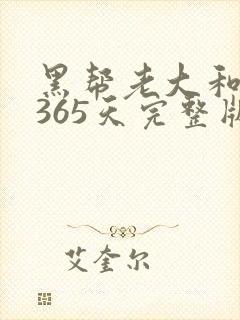 黑帮老大和
365天完整版
艾奎尔